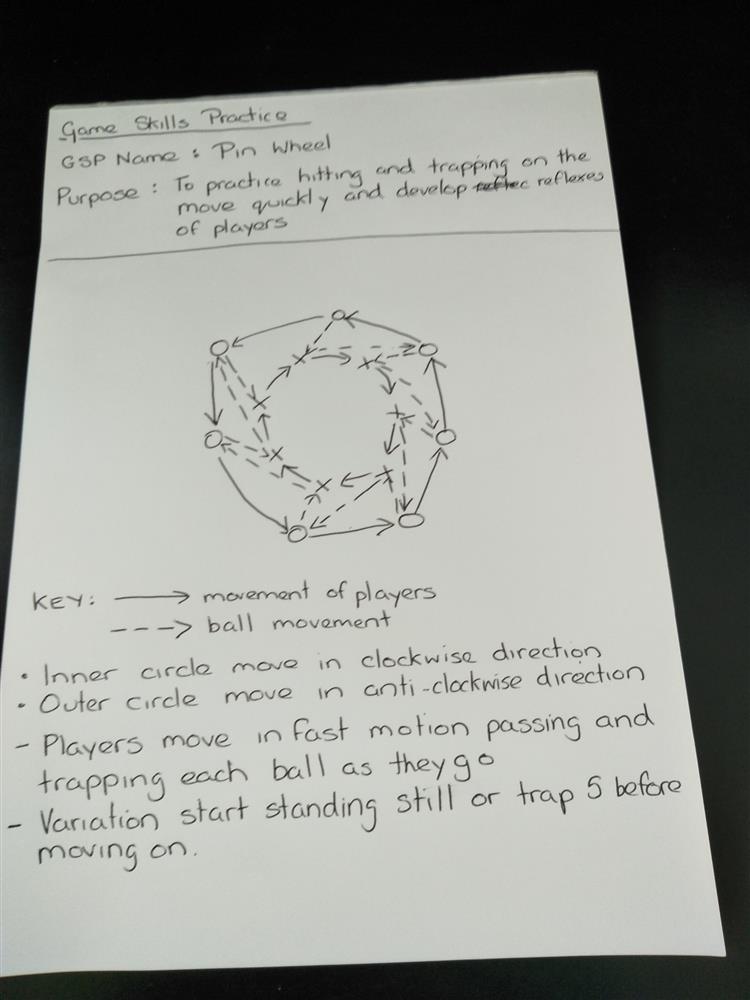 Game Skills Practice
GSP Name : Pin Wheel
Purpose : To practice hitting and trapping on the
move quickly and develop reflexes
of players
KEY: movement of players
ball movement
• Inner circle move in clockwise direction
• Outer circle move in anti-clockwise direction
- Players move in fast motion passing and
trapping each ball as they go
- Variation start standing still or trap 5 before
moving on.